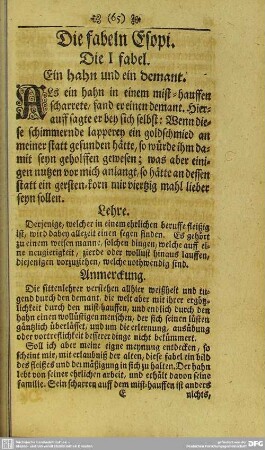 (65)
Die fabeln Esopi.
Die I fabel.
Ein hahn und ein demant.
ALs ein hahn in einem mist-hauffen
scharrete, fand er einen demant. Hier-
auff sagte er bey sich selbst: Wenn die-
se schimmernde lapperey ein goldschmied an
meiner statt gefunden hätte, so würde ihm da-
mit seyn geholffen gewesen; was aber eini-
gen nutzen vor mich anlangt, so hätte an dessen
statt ein gersten-korn mir viertzig mahl lieber
seyn sollen.
Lehre.
Derjenige, welcher in einem ehrlichen beruffe fleißig
ist, wird dabey allezeit einen segen finden. Es gehört
zu einem weisen manne, solchen dingen, welche auff ei-
ne neugierigkeit, zierde oder wollust hinaus lauffen,
diejenigen vorzuziehen, welche nothwendig sind.
Anmerckung.
Die sittenlehrer verstehen allhier weißheit und tu-
gend durch den demant, die welt aber mit ihrer ergötz-
lichkeit durch den mist-hauffen, und endlich durch den
hahn einen wollüstigen menschen, der sich seinen lüsten
gäntzlich überlässet, und um die erlernung, ausübung
oder vortreflichkeit besserer dinge nicht bekümmert.
Soll ich aber meine eigne meynung entdecken, so
scheint mir, mit erlaubniß der alten, diese fabel ein bild
des fleisses und der mäßigung in sich zu halten. Der hahn
lebt von seiner ehrlichen arbeit, und erhält davon seine
familie. Sein scharren auff dem mist-hauffen ist anders
E nichts,
DFG